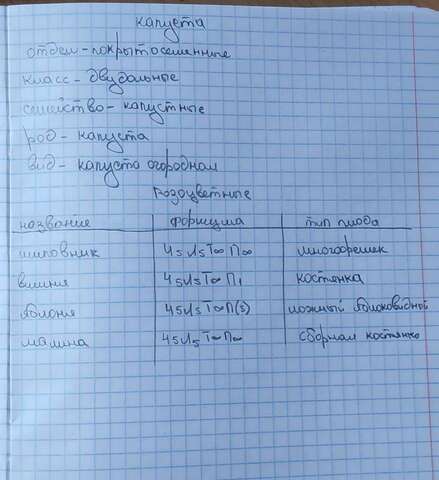 капуста
отдел - покрытосеменные
класс - двудольные
семейство - капустные
род - капуста
вид - капуста огородная
Розоцветные
название формула тип плода
шиповник Ч5Л5Т∞П∞ многорешек
вишня Ч5Л5Т∞П1 костянка
яблоня Ч5Л5Т∞П(5) ложный яблоковидной
малина Ч5Л5Т∞П∞ сборная костянка